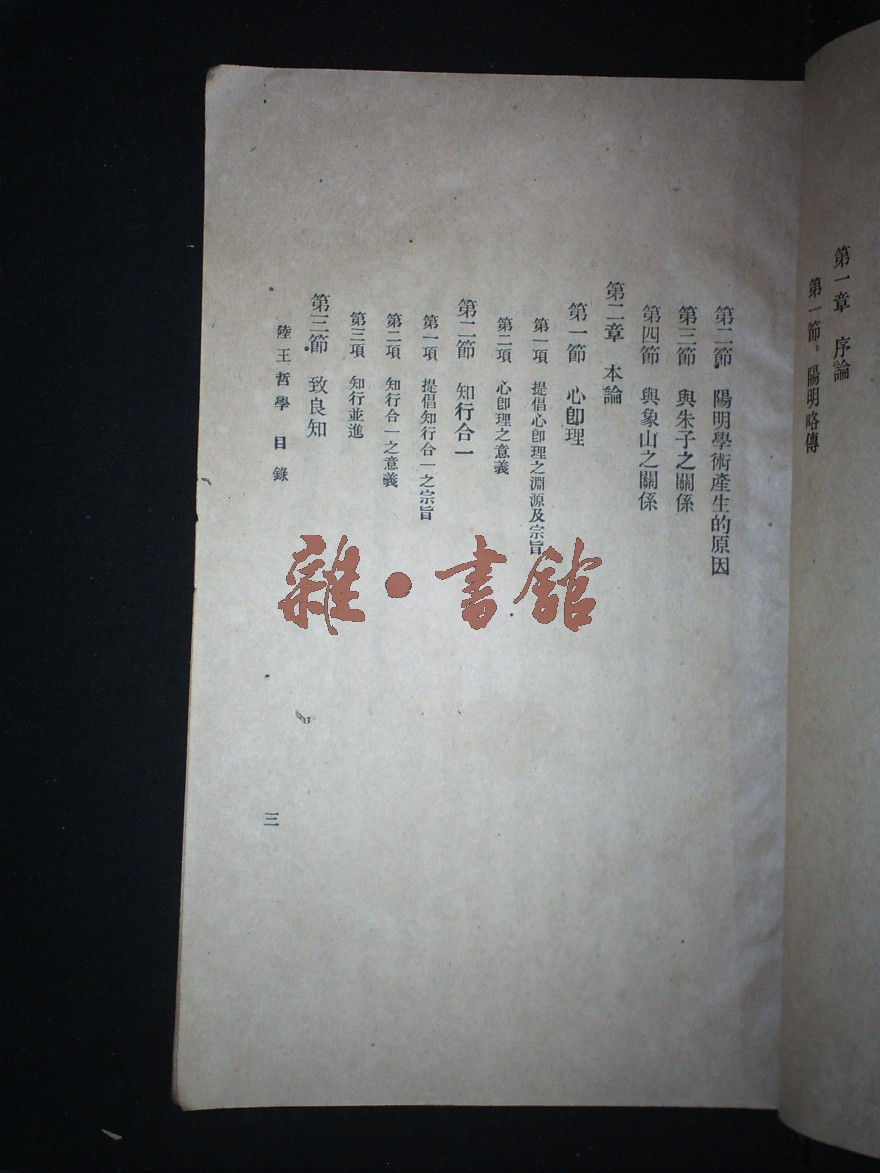 第一章　序論
第一節　陽明略傳
第二節　陽明學術產生的原因
第三節　與朱子之關係
第四節　與象山之關係
第二章　本論
第一節　心卽理
第一項　提倡心卽理之淵源及宗旨
第二項　心卽理之意義
第二節　知行合一
第一項　提倡知行合一之宗旨
第二項　知行合一之意義
第三項　知行並進
第三節　致良知
陸王哲學　目錄
三
雜·書館